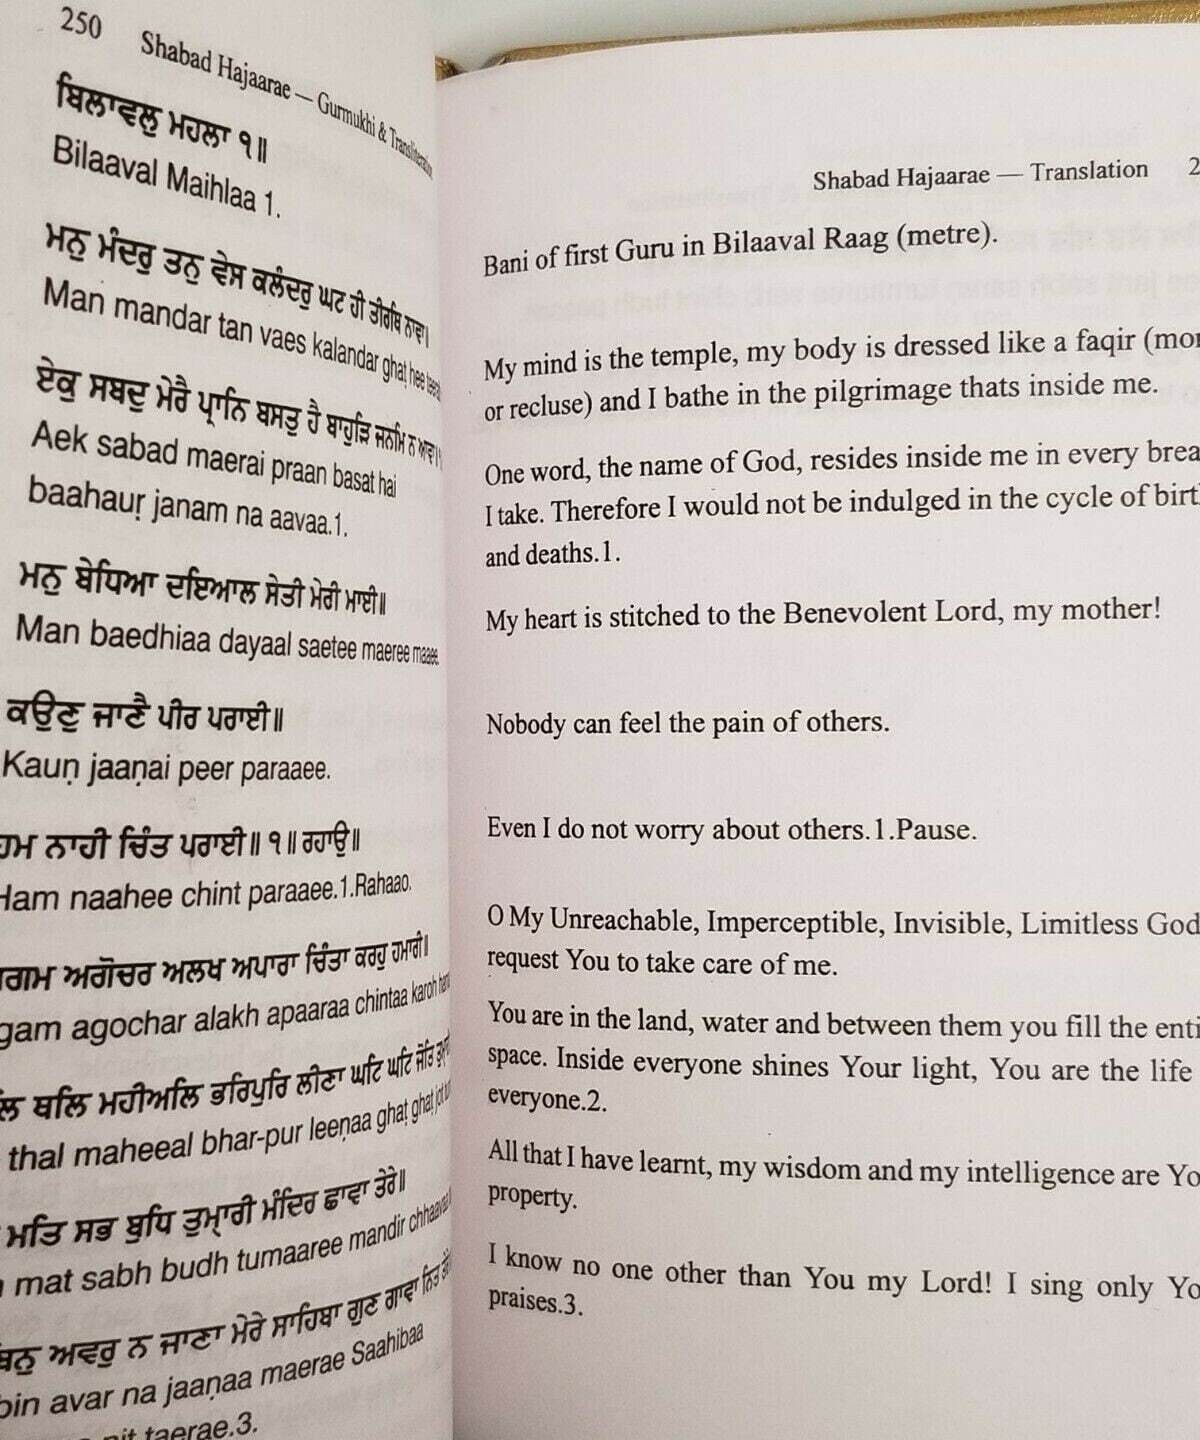 250
Shabad Hajaarae — Gurmukhi & Transliteration
ਬਿਲਾਵਲੁ ਮਹਲਾ ੧॥
Bilaaval Maihlaa 1.
ਮਨੁ ਮੰਦਰੁ ਤਨੁ ਵੇਸ ਕਲੰਦਰੁ ਘਟ ਹੀ ਤੀਰਥਿ ਨਾਵਾ।
Man mandar tan vaes kalandar ghaṭ hee
ਏਕੁ ਸਬਦੁ ਮੇਰੈ ਪ੍ਰਾਨਿ ਬਸਤੁ ਹੈ ਬਾਹੁੜਿ ਜਨਮਿ ਨ ਆਵਾ।
Aek sabad maerai praan basat hai
baahauṛ janam na aavaa.1.
ਮਨੁ ਬੇਧਿਆ ਦਇਆਲ ਸੇਤੀ ਮੇਰੀ ਮਾਈ॥
Man baedhiaa dayaal saetee maeree maaee.
ਕਉਣੁ ਜਾਣੈ ਪੀਰ ਪਰਾਈ॥
Kauṇ jaaṇai peer paraaee.
ਹਮ ਨਾਹੀ ਚਿੰਤ ਪਰਾਈ॥ ੧॥ ਰਹਾਉ॥
Ham naahee chint paraaee.1.Rahaao.
ਅਗੋਚਰ ਅਲਖ ਅਪਾਰਾ ਚਿੰਤਾ ਕਰਹੁ ਹਮਾਰੀ॥
gam agochar alakh apaaraa chintaa karoh
ਥਲਿ ਮਹੀਅਲਿ ਭਰਿਪੁਰਿ ਲੀਣਾ ਘਟਿ ਘਟਿ ਜੋਤਿ
thal maheeal bhar-pur leeṇaa ghaṭ ghaṭ jot
ਮਤਿ ਸਭ ਬੁਧਿ ਤੁਮ੍ਹਾਰੀ ਮੰਦਿਰ ਛਾਵਾ ਤੇਰੇ॥
mat sabh budh tumaaree mandir
ਅਵਰੁ ਨ ਜਾਣਾ ਮੇਰੇ ਸਾਹਿਬਾ ਗੁਣ ਗਾਵਾ ਨਿਤ
bin avar na jaaṇaa maerae Saahibaa
nit taerae.3.
Shabad Hajaarae — Translation 2
Bani of first Guru in Bilaaval Raag (metre).
My mind is the temple, my body is dressed like a faqir (mon
or recluse) and I bathe in the pilgrimage thats inside me.
One word, the name of God, resides inside me in every brea
I take. Therefore I would not be indulged in the cycle of birt
and deaths.1.
My heart is stitched to the Benevolent Lord, my mother!
Nobody can feel the pain of others.
Even I do not worry about others.1.Pause.
O My Unreachable, Imperceptible, Invisible, Limitless God
request You to take care of me.
You are in the land, water and between them you fill the enti
space. Inside everyone shines Your light, You are the life
everyone.2.
All that I have learnt, my wisdom and my intelligence are Yo
property.
I know no one other than You my Lord! I sing only Yo
praises.3.